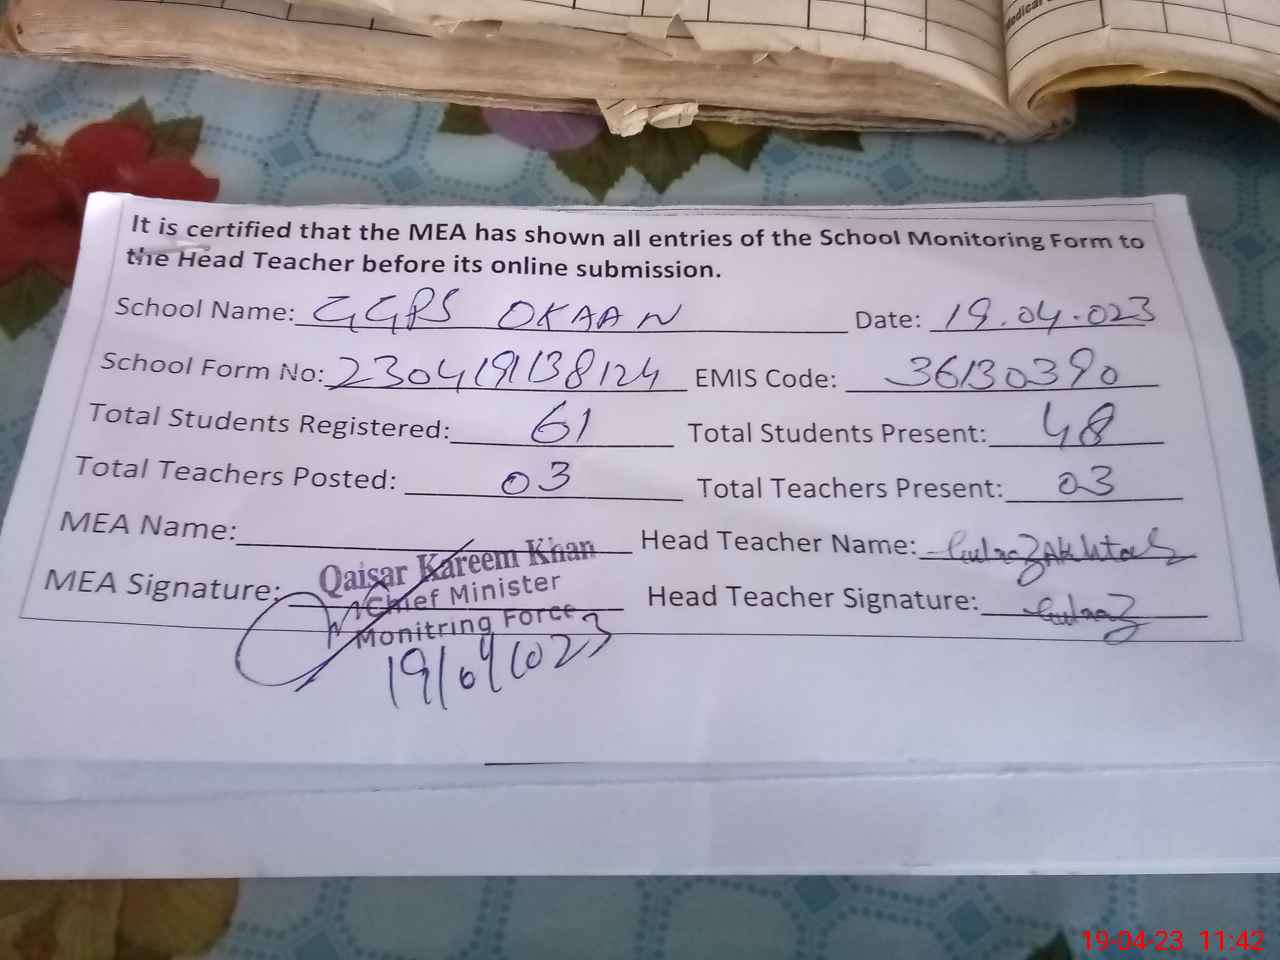 Medical
It is certified that the MEA has shown all entries of the School Monitoring Form to
the Head Teacher before its online submission.
School Name: GGPS OKAAN Date: 19.04.023
School Form No: 230419138124 EMIS Code: 36130390
Total Students Registered: 61 Total Students Present: 48
Total Teachers Posted: 03 Total Teachers Present: 03
MEA Name: Head Teacher Name: Gulnaz Akhtar
Qaisar Kareem Khan
MEA Signature: Chief Minister Head Teacher Signature: Gulnaz
Monitring Force
19/04/023
19-04-23 11:42